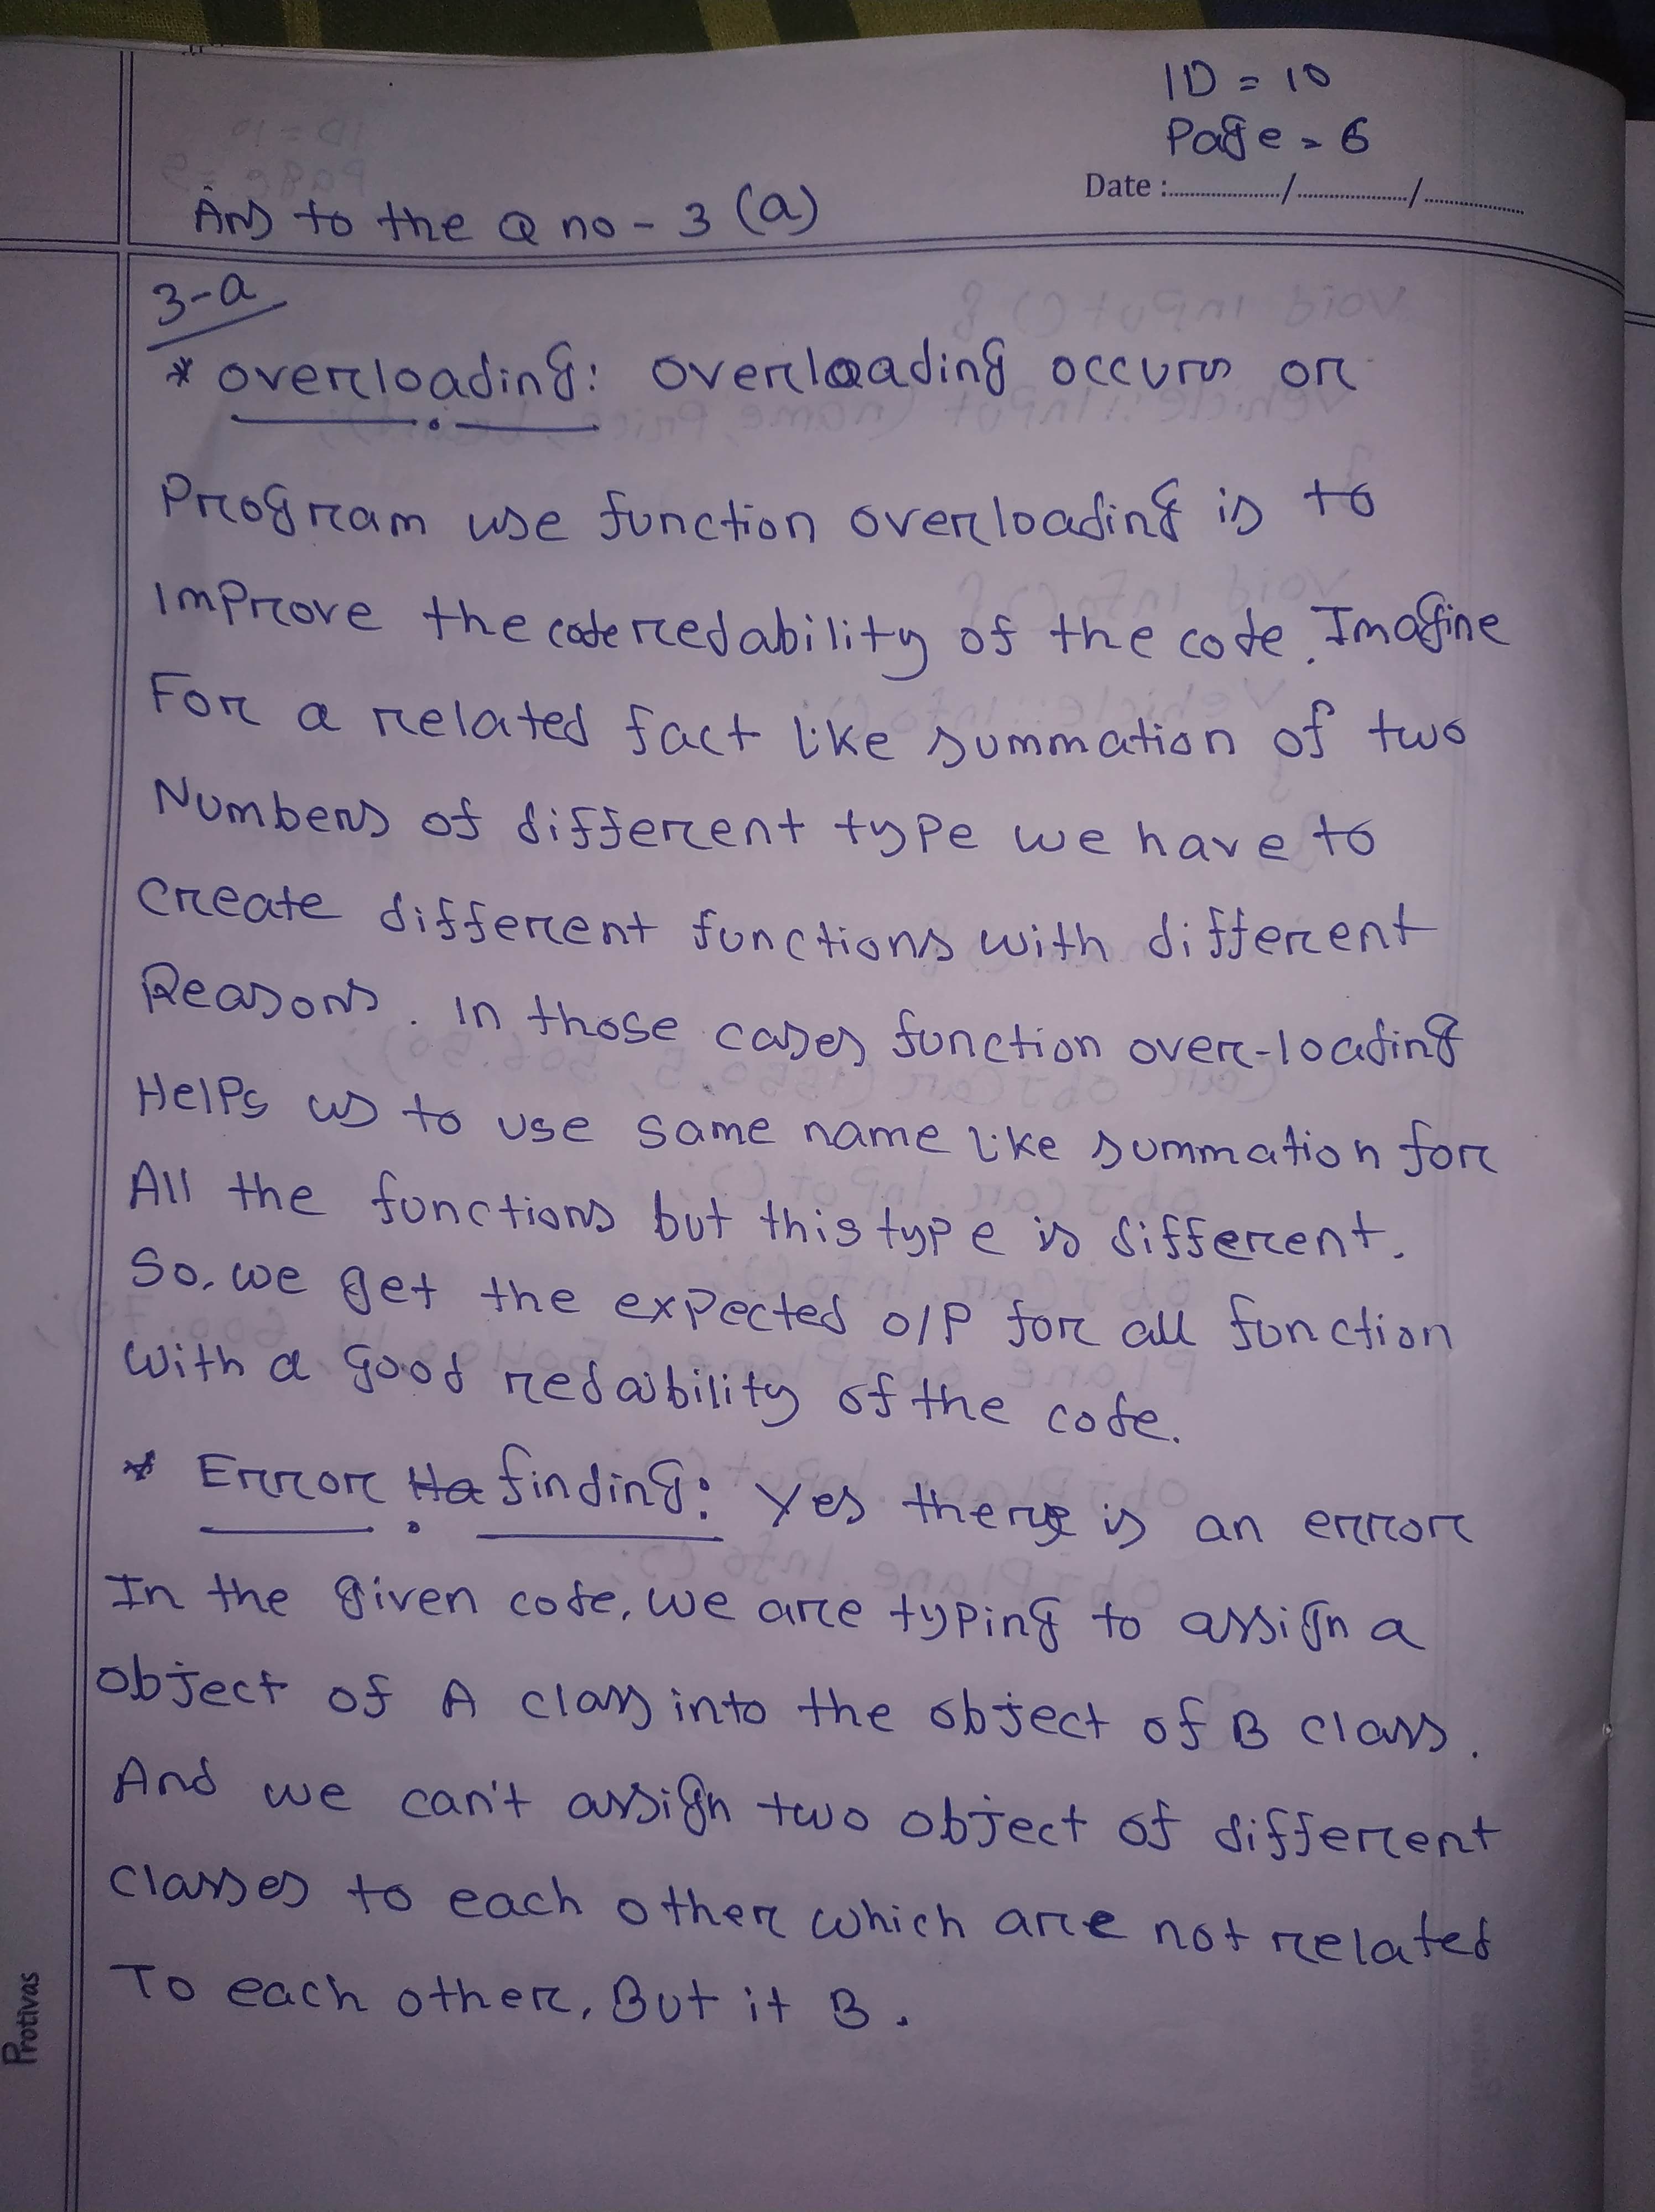 ID = 10
Page = 6
Date :............/............/............
Ans to the Q no - 3 (a)
3-a
* overloading: overloading occurs or
Program use function overloading is to
Improve the code redability of the code. Imagine
For a related fact like summation of two
Numbers of different type we have to
create different functions with different
Reasons. In those cases function over-loading
Helps us to use same name like summation for
All the functions but this type is different.
So, we get the expected o/p for all function
with a good redability of the code.
* Error finding: Yes there is an error
In the given code, we are typing to assign a
object of A class into the object of B class.
And we can't assign two object of different
classes to each other which are not related
To each other, But it B.
Protivas